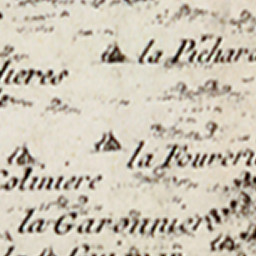 la Pichar
lieres
la Foureri
Coliniere
la Garonniere